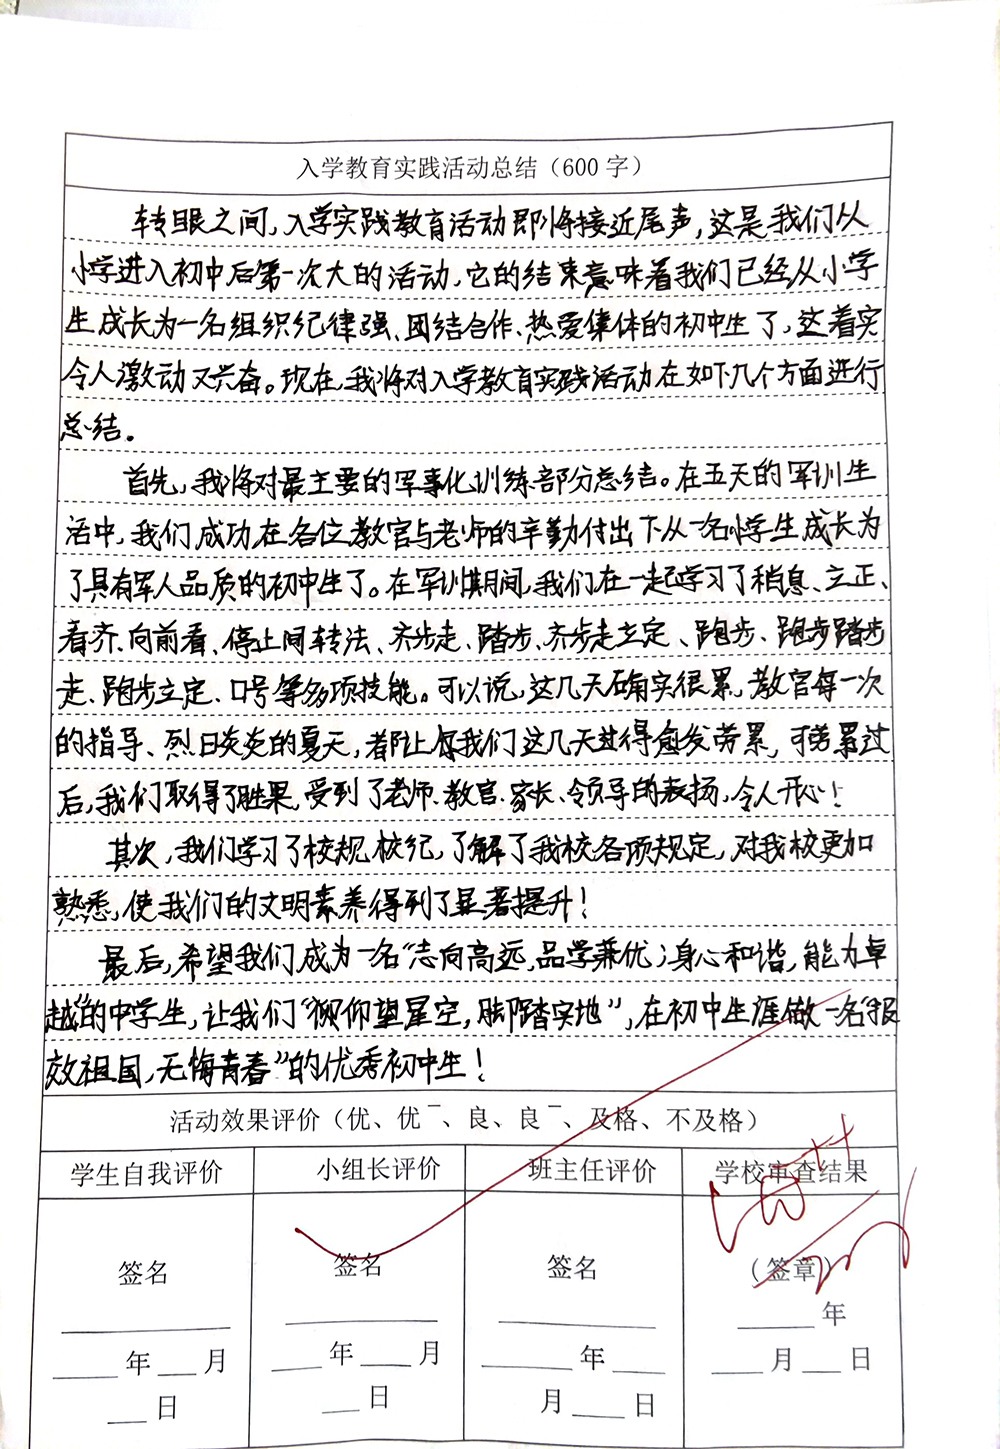 入学教育实践活动总结（600字）
转眼之间，入学实践教育活动即将接近尾声，这是我们从
小学进入初中后第一次大的活动，它的结束意味着我们已经从小学
生成长为一名组织纪律强、团结合作、热爱集体的初中生了，这着实
令人激动又兴奋。现在，我将对入学教育实践活动在如下几个方面进行
总结。
首先，我将对最主要的军事化训练部分总结。在五天的军训生
活中，我们成功在各位教官与老师的辛勤付出下从一名小学生成长为
了具有军人品质的初中生了。在军训期间，我们在一起学习了稍息、立正、
看齐、向前看、停止间转法、齐步走、踏步、齐步走立定、跑步、跑步踏步
走、跑步立定、口号等多项技能。可以说，这几天确实很累，教官每一次
的指导、烈日炎炎的夏天，都让我们这几天过得愈发劳累，可劳累过
后，我们取得了胜果，受到了老师、教官、家长、领导的表扬，令人开心！
其次，我们学习了校规校纪，了解了我校各项规定，对我校更加
熟悉，使我们的文明素养得到了显著提升！
最后，希望我们成为一名“志向高远，品学兼优；身心和谐，能力卓
越”的中学生，让我们“仰望星空，脚踏实地”，在初中生涯做一名“报
效祖国，无悔青春”的优秀初中生！
活动效果评价（优、优￣、良、良￣、及格、不及格）
学生自我评价 小组长评价 班主任评价 学校审查结果
签名 签名 签名 （签章）
年 月 日
年 月 日
年 月 日
年 月 日